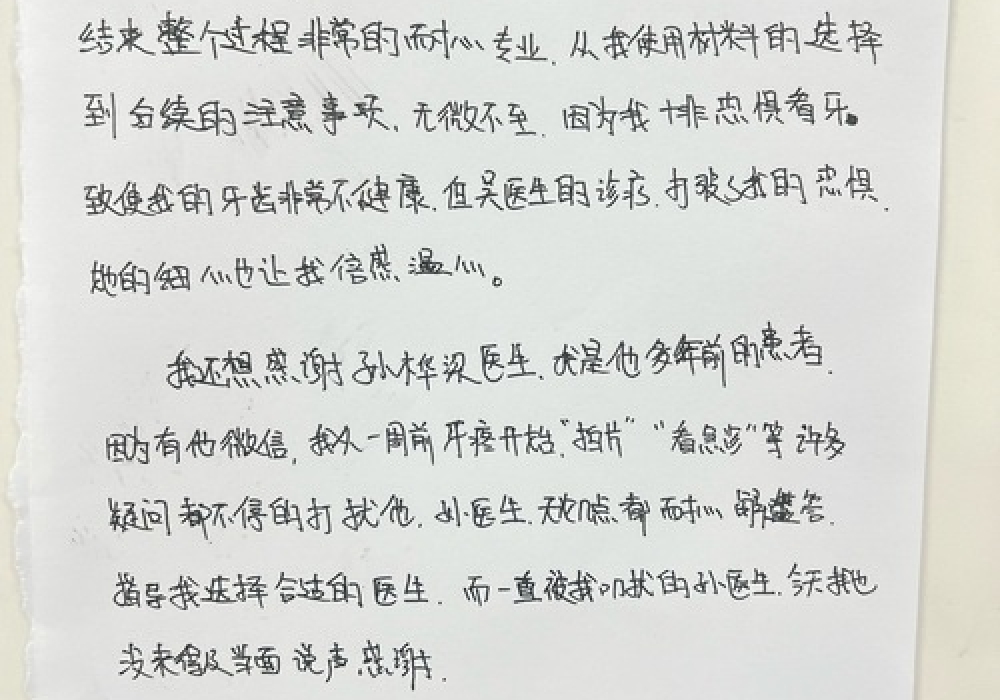 结束整个过程非常的耐心专业，从我使用材料的选择
到后续的注意事项，无微不至，因为我十非恐惧看牙。
致使我的牙齿非常不健康，但吴医生的诊疗，打破了我的恐惧，
她的细心也让我倍感温心。
我还想感谢孙桦梁医生，我是他多年前的患者，
因为有他微信，我从一周前牙疼开始，“拍片”“看急诊”等许多
疑问都不停的打扰他，孙医生，都耐心解答，
指导我选择合适的医生，而一直被我叨扰的孙医生，今天我也
没来得及当面说声感谢，